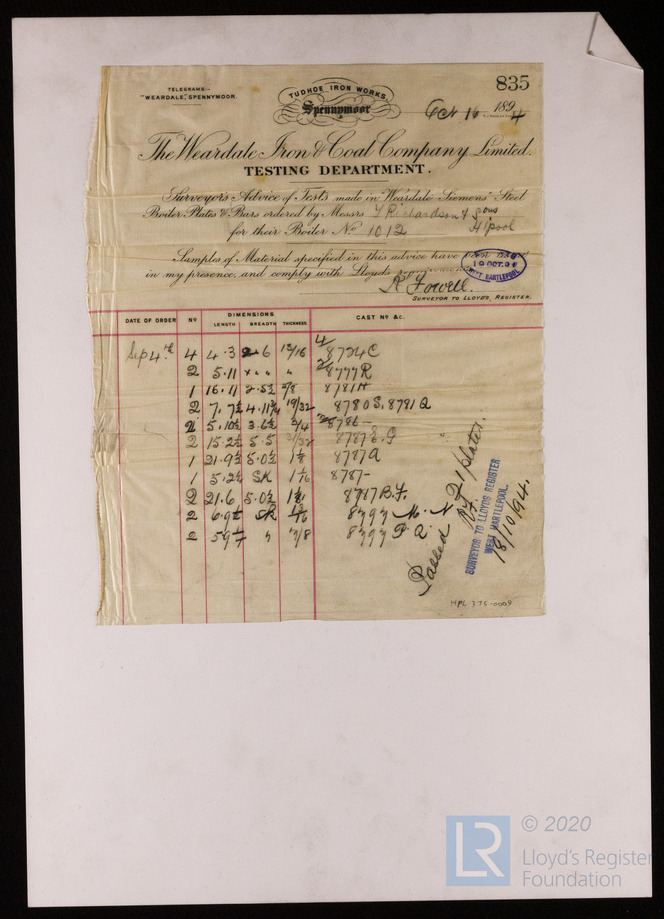 835
TELEGRAMS:-
"WEARDALE, SPENNYMOOR.
TUDHOE IRON WORKS,
Spennymoor
Oct 16 1894
The Weardale Iron & Coal Company, Limited.
TESTING DEPARTMENT.
Surveyor's Advice of Tests made in "Weardale Siemens" Steel
Boiler Plates & Bars ordered by Messrs T Richardson & Sons
for their Boiler No 1012 H'pool
Samples of Material specified in this advice have
in my presence, and comply with Lloyds
19 OCT. 94
WEST HARTLEPOOL
R Fowell.
SURVEYOR TO LLOYD'S, REGISTER.
DATE OF ORDER No DIMENSIONS CAST No &c.
LENGTH BREADTH THICKNESS
Sep 4th 4 4.3 2.6 13/16 4/ 8724C
2 5.11 " " " 2/ 8777R
1 16.11 2.5½ 7/8 8781H
2 7.7½ 4.11¾ 19/32 8780S, 8781Q
2 5.10½ 3.6½ 3/4 8786-
2 15.2½ 5.5 8787
1 21.9½ 5.0½ 1⅛ 8787A
1 5.2½ SK 1 1/16 8787-
2 21.6 5.0½ 1⅛ 8787B.F.
2 6.9½ SK 8797 M. N
2 59½ " 7/8 8797 P Q.
Passed RF 21 plates.
SURVEYOR TO LLOYDS REGISTER
WEST HARTLEPOOL.
18/10/94.
HPL 375-0009
LR
© 2020
Lloyd's Register
Foundation